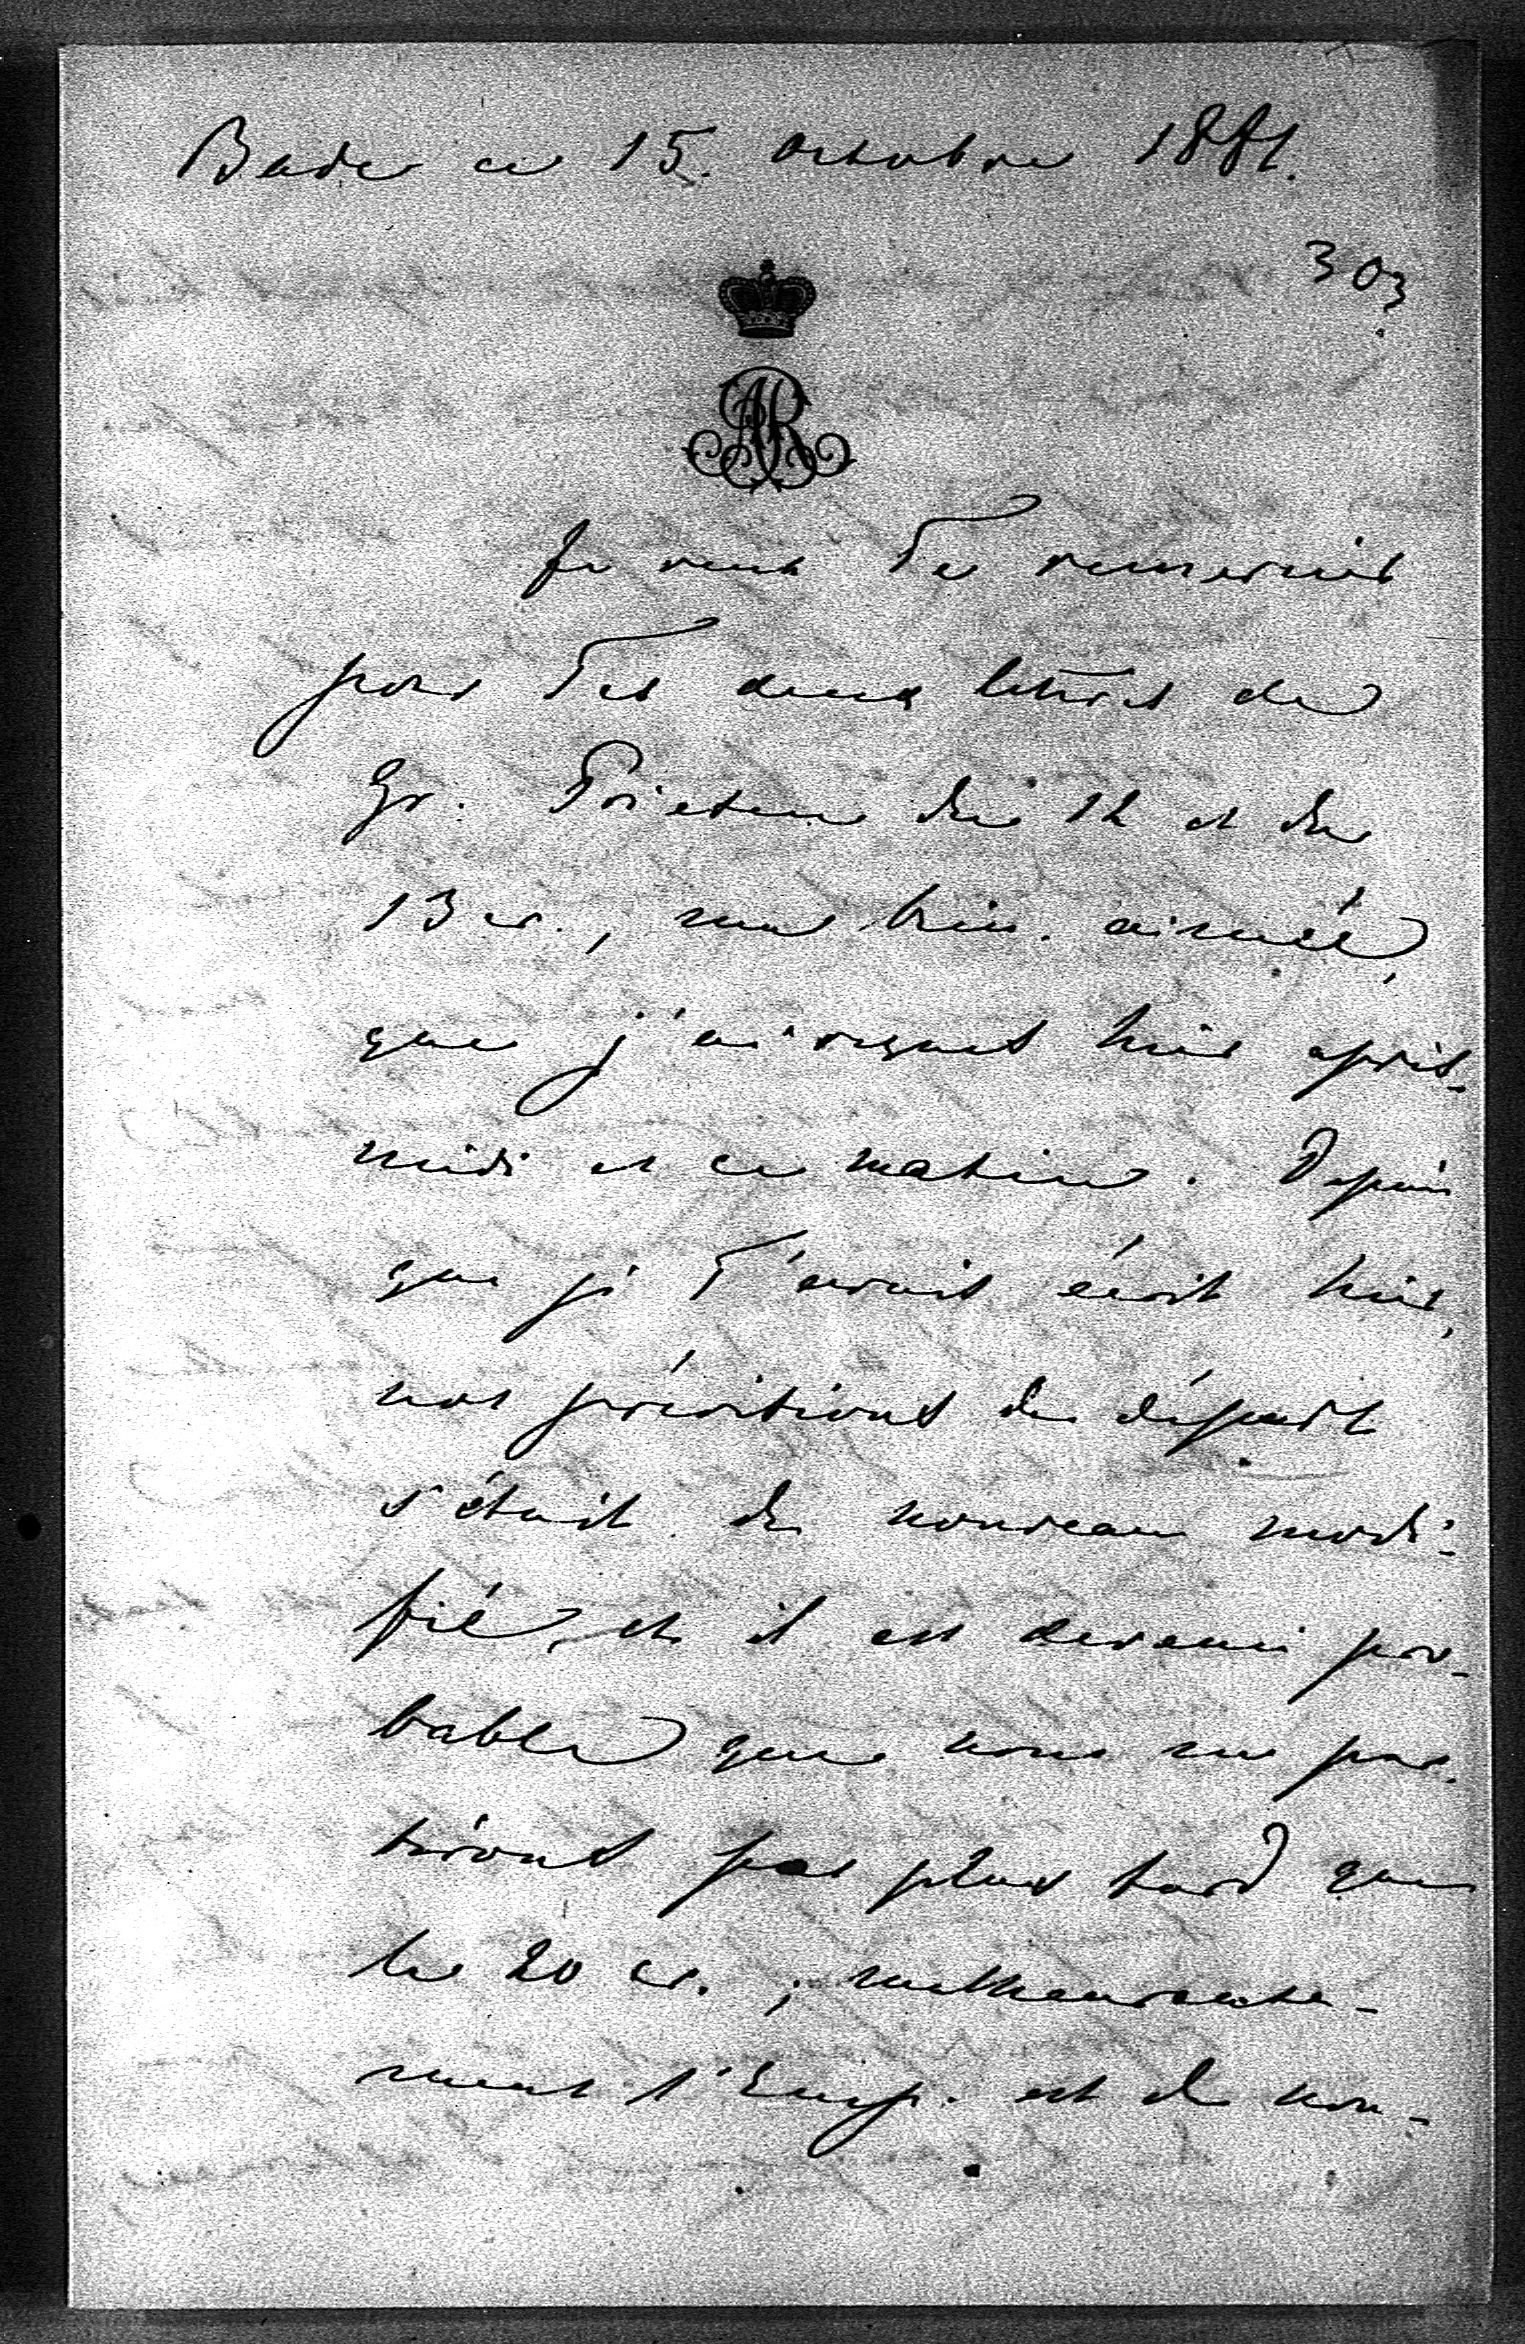 Bade ce 15. octobre 1881.
303.
AR
Je veux Te remercier
pour Tes deux lettres de
Gr. Prietzen du 12 et du
13 cr., ma bien-aimée,
que j'ai reçues hier après-
midi et ce matin. Depuis
que je T'avais écrit hier,
nos prévisions de départ
s'était de nouveau modi-
fié, et il est devenu pro-
bable que nous ne par-
tirons pas plus tard que
le 20 cr.; malheureuse-
ment l'Emp. est de nou-